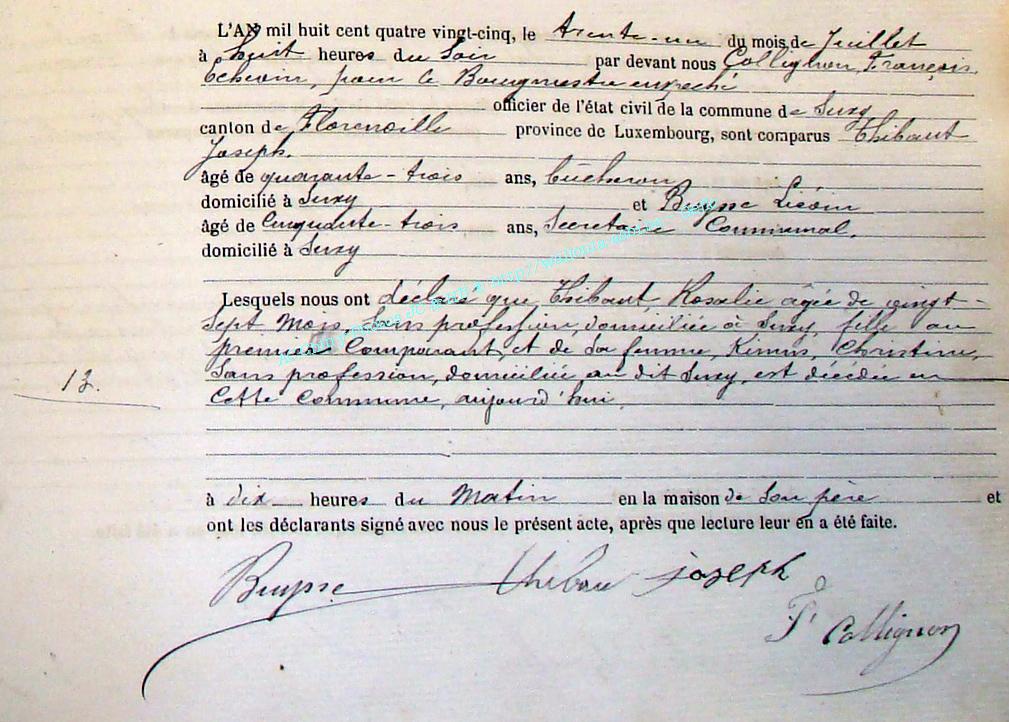 L'AN mil huit cent quatre vingt-cinq, le trente-un du mois de Juillet
à huit heures du Soir par devant nous Collignon, François,
Echevin, pour le Bourgmestre empeché
officier de l'état civil de la commune de Suxy
canton de Florenville province de Luxembourg, sont comparus Thibaut
Joseph.
âgé de quarante-trois ans, bûcheron
domicilié à Suxy et Buysse
âgé de Cinquante-trois ans, Secretaire Communal,
domicilié à Suxy
Lesquels nous ont déclaré que Thibaut, Rosalie âgée de vingt-
Sept Mois, Sans profession, domiciliée à Suxy, fille du
premier Comparant, et de Sa femme, Christine,
Sans profession, domiciliée au dit Suxy, est décédée en
Cette Commune, aujourd'hui,
13.
à dix heures du Matin en la maison de Son père et
ont les déclarants signé avec nous le présent acte, après que lecture leur en a été faite.
Buysse Thibau joseph
F Collignon